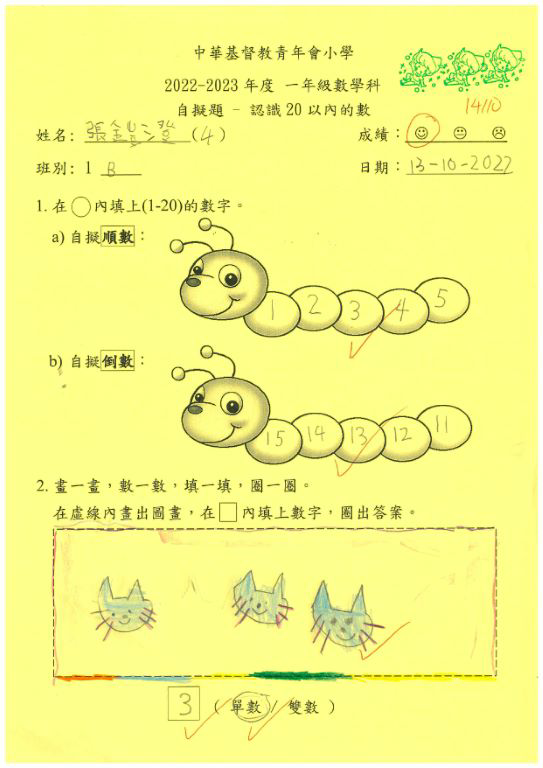 中華基督教青年會小學
2022-2023 年度 一年級數學科
自擬題 - 認識 20 以內的數
14/10
姓名: 張 澄 (4) 成績:
班別: 1 B 日期: 13-10-2022
1. 在○內填上(1-20)的數字。
a) 自擬順數:
1 2 3 4 5
b) 自擬倒數:
15 14 13 12 11
2. 畫一畫,數一數,填一填,圈一圈。
在虛線內畫出圖畫,在□內填上數字,圈出答案。
3 ( 單數 / 雙數 )